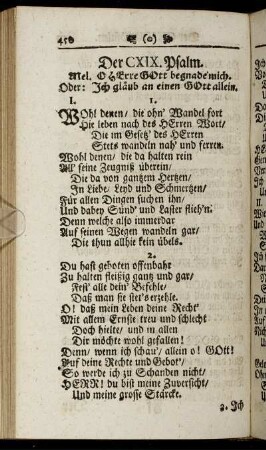 450 (o)
Der CXIX. Psalm.
Mel. O HErre GOtt begnade mich.
Oder: Jch gläub an einen GOtt allein.
I. 1.
WOhl denen/ die ohn' Wandel fort
Hie leben nach des HErren Wort/
Die im Gesetz' des HErren
Stets wandeln nah' und ferren.
Wohl denen/ die da halten rein
All' seine Zeugniß überein/
Die da von gantzem Hertzen/
In Liebe/ Leyd und Schmertzen/
Für allen Dingen suchen ihn/
Und dabey Sünd' und Laster flieh'n.
Denn welche also immerdar
Auf seinen Wegen wandeln gar/
Die thun allhie kein übels.
2.
Du hast geboten offenbahr
Zu halten fleißig gantz und gar/
Fest' alle dein' Befehle/
Daß man sie stet's erzehle.
O! daß mein Leben deine Recht'
Mit allem Ernste treu und schlecht
Doch hielte/ und in allen
Dir möchte wohl gefallen!
Denn/ wenn ich schau'/ allein o! GOtt!
Auf deine Rechte und Gebot/
So werde ich zu Schanden nicht/
HERR! du bist meine Zuversicht/
Und meine grosse Stärcke.
3. Jch